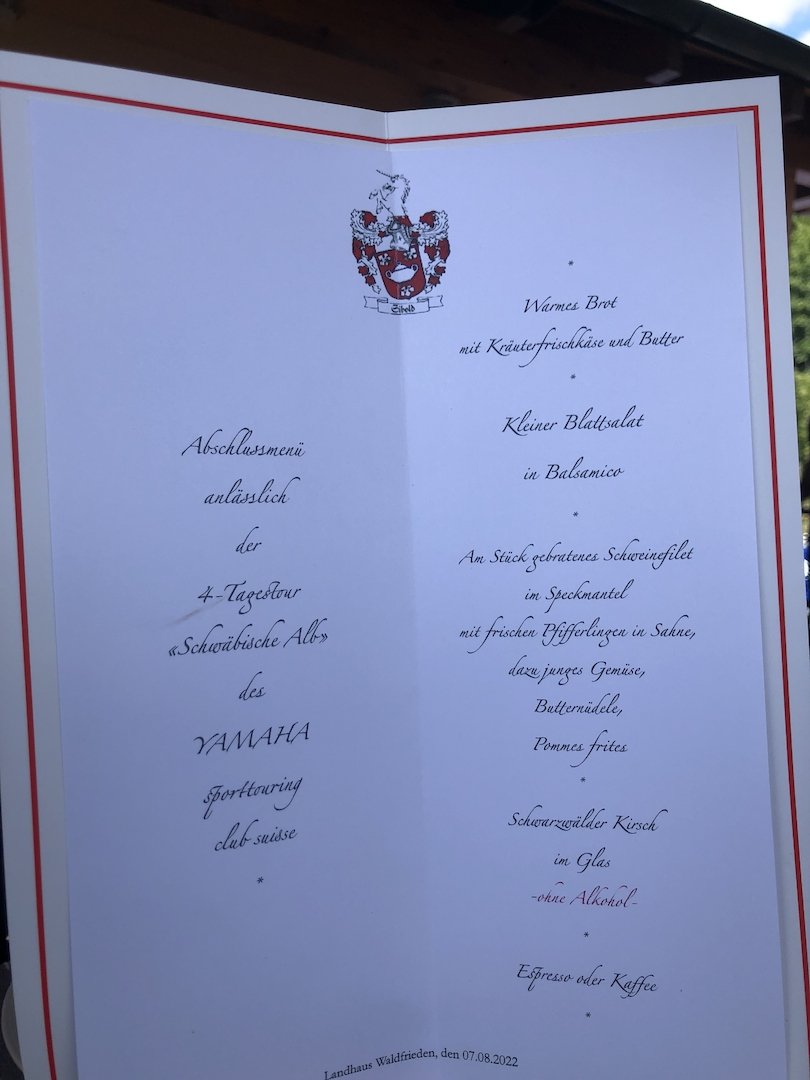 Sibold
Abschlussmenü
anlässlich
der
4-Tagestour
«Schwäbische Alb»
des
YAMAHA
sporttouring
club suisse
*
*
Warmes Brot
mit Kräuterfrischkäse und Butter
*
Kleiner Blattsalat
in Balsamico
*
Am Stück gebratenes Schweinefilet
im Speckmantel
mit frischen Pfifferlingen in Sahne,
dazu junges Gemüse,
Butternüdele,
Pommes frites
*
Schwarzwälder Kirsch
im Glas
-ohne Alkohol-
*
Espresso oder Kaffee
*
Landhaus Waldfrieden, den 07.08.2022